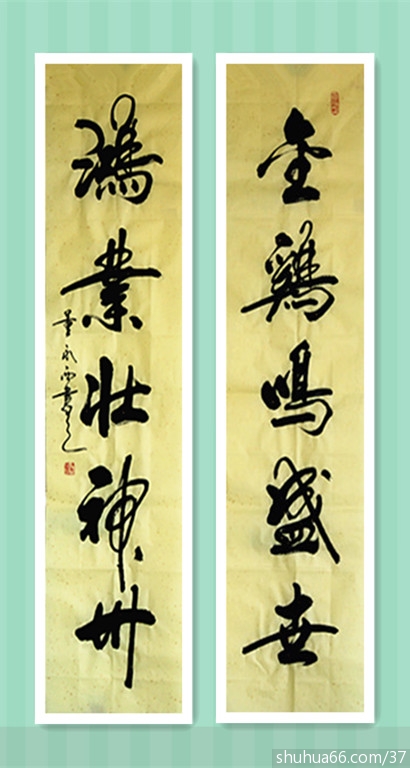 金鷄鳴盛世
鴻業壯神州
shuhua66.com/37